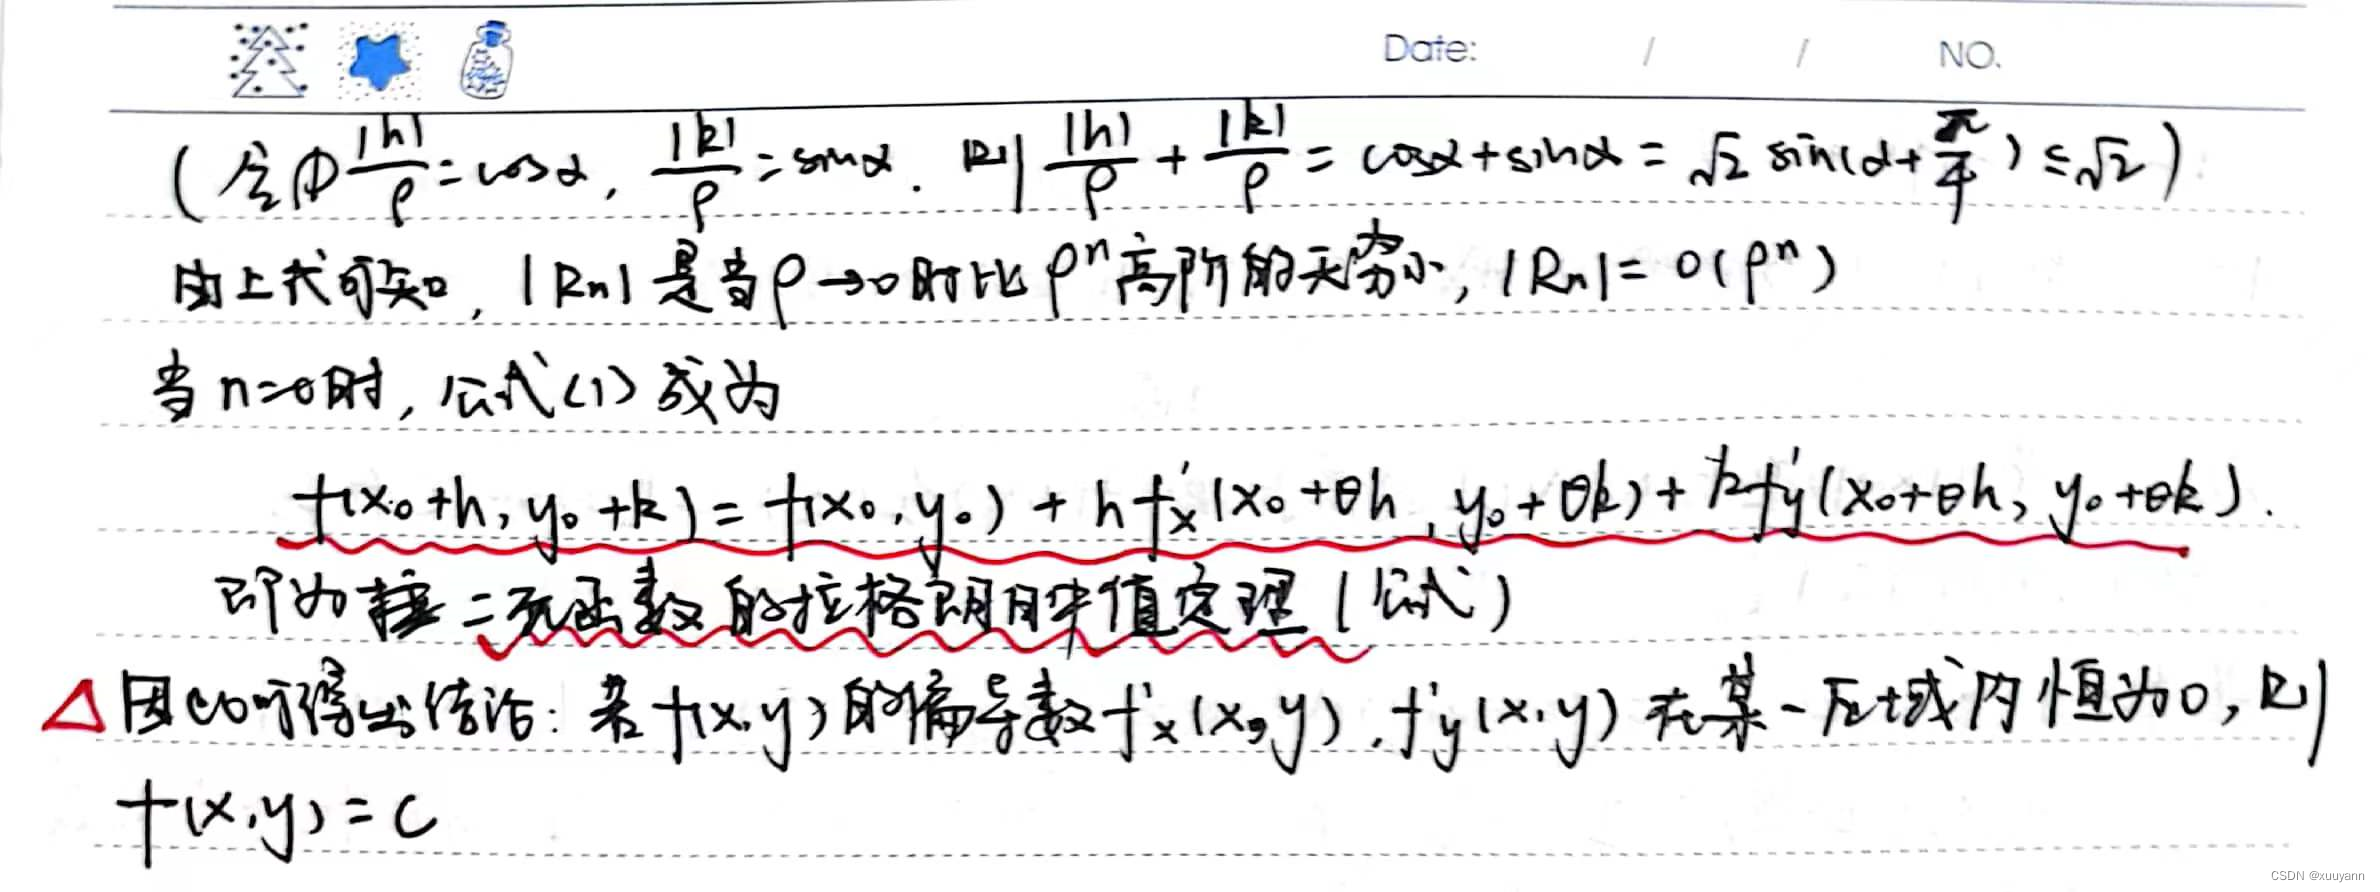 Date: / / NO.
(令中|h|/ρ=cosα, |k|/ρ=sinα. 则|h|/ρ+|k|/ρ=cosα+sinα=√2 sin(α+π/4)≤√2)
由上式可知, |Rn|是当ρ→0时比ρⁿ高阶的无穷小, |Rn|=o(ρⁿ)
当n=0时, 公式(1)成为
f(x₀+h, y₀+k)=f(x₀, y₀)+hf'ₓ(x₀+θh, y₀+θk)+kf'y(x₀+θh, y₀+θk).
即为 二元函数的拉格朗日中值定理(公式)
由 可得出结论: 若f(x,y)的偏导数f'ₓ(x,y), f'y(x,y)在某一区域内恒为0, 则
f(x,y)=C
CSDN @xuuyann